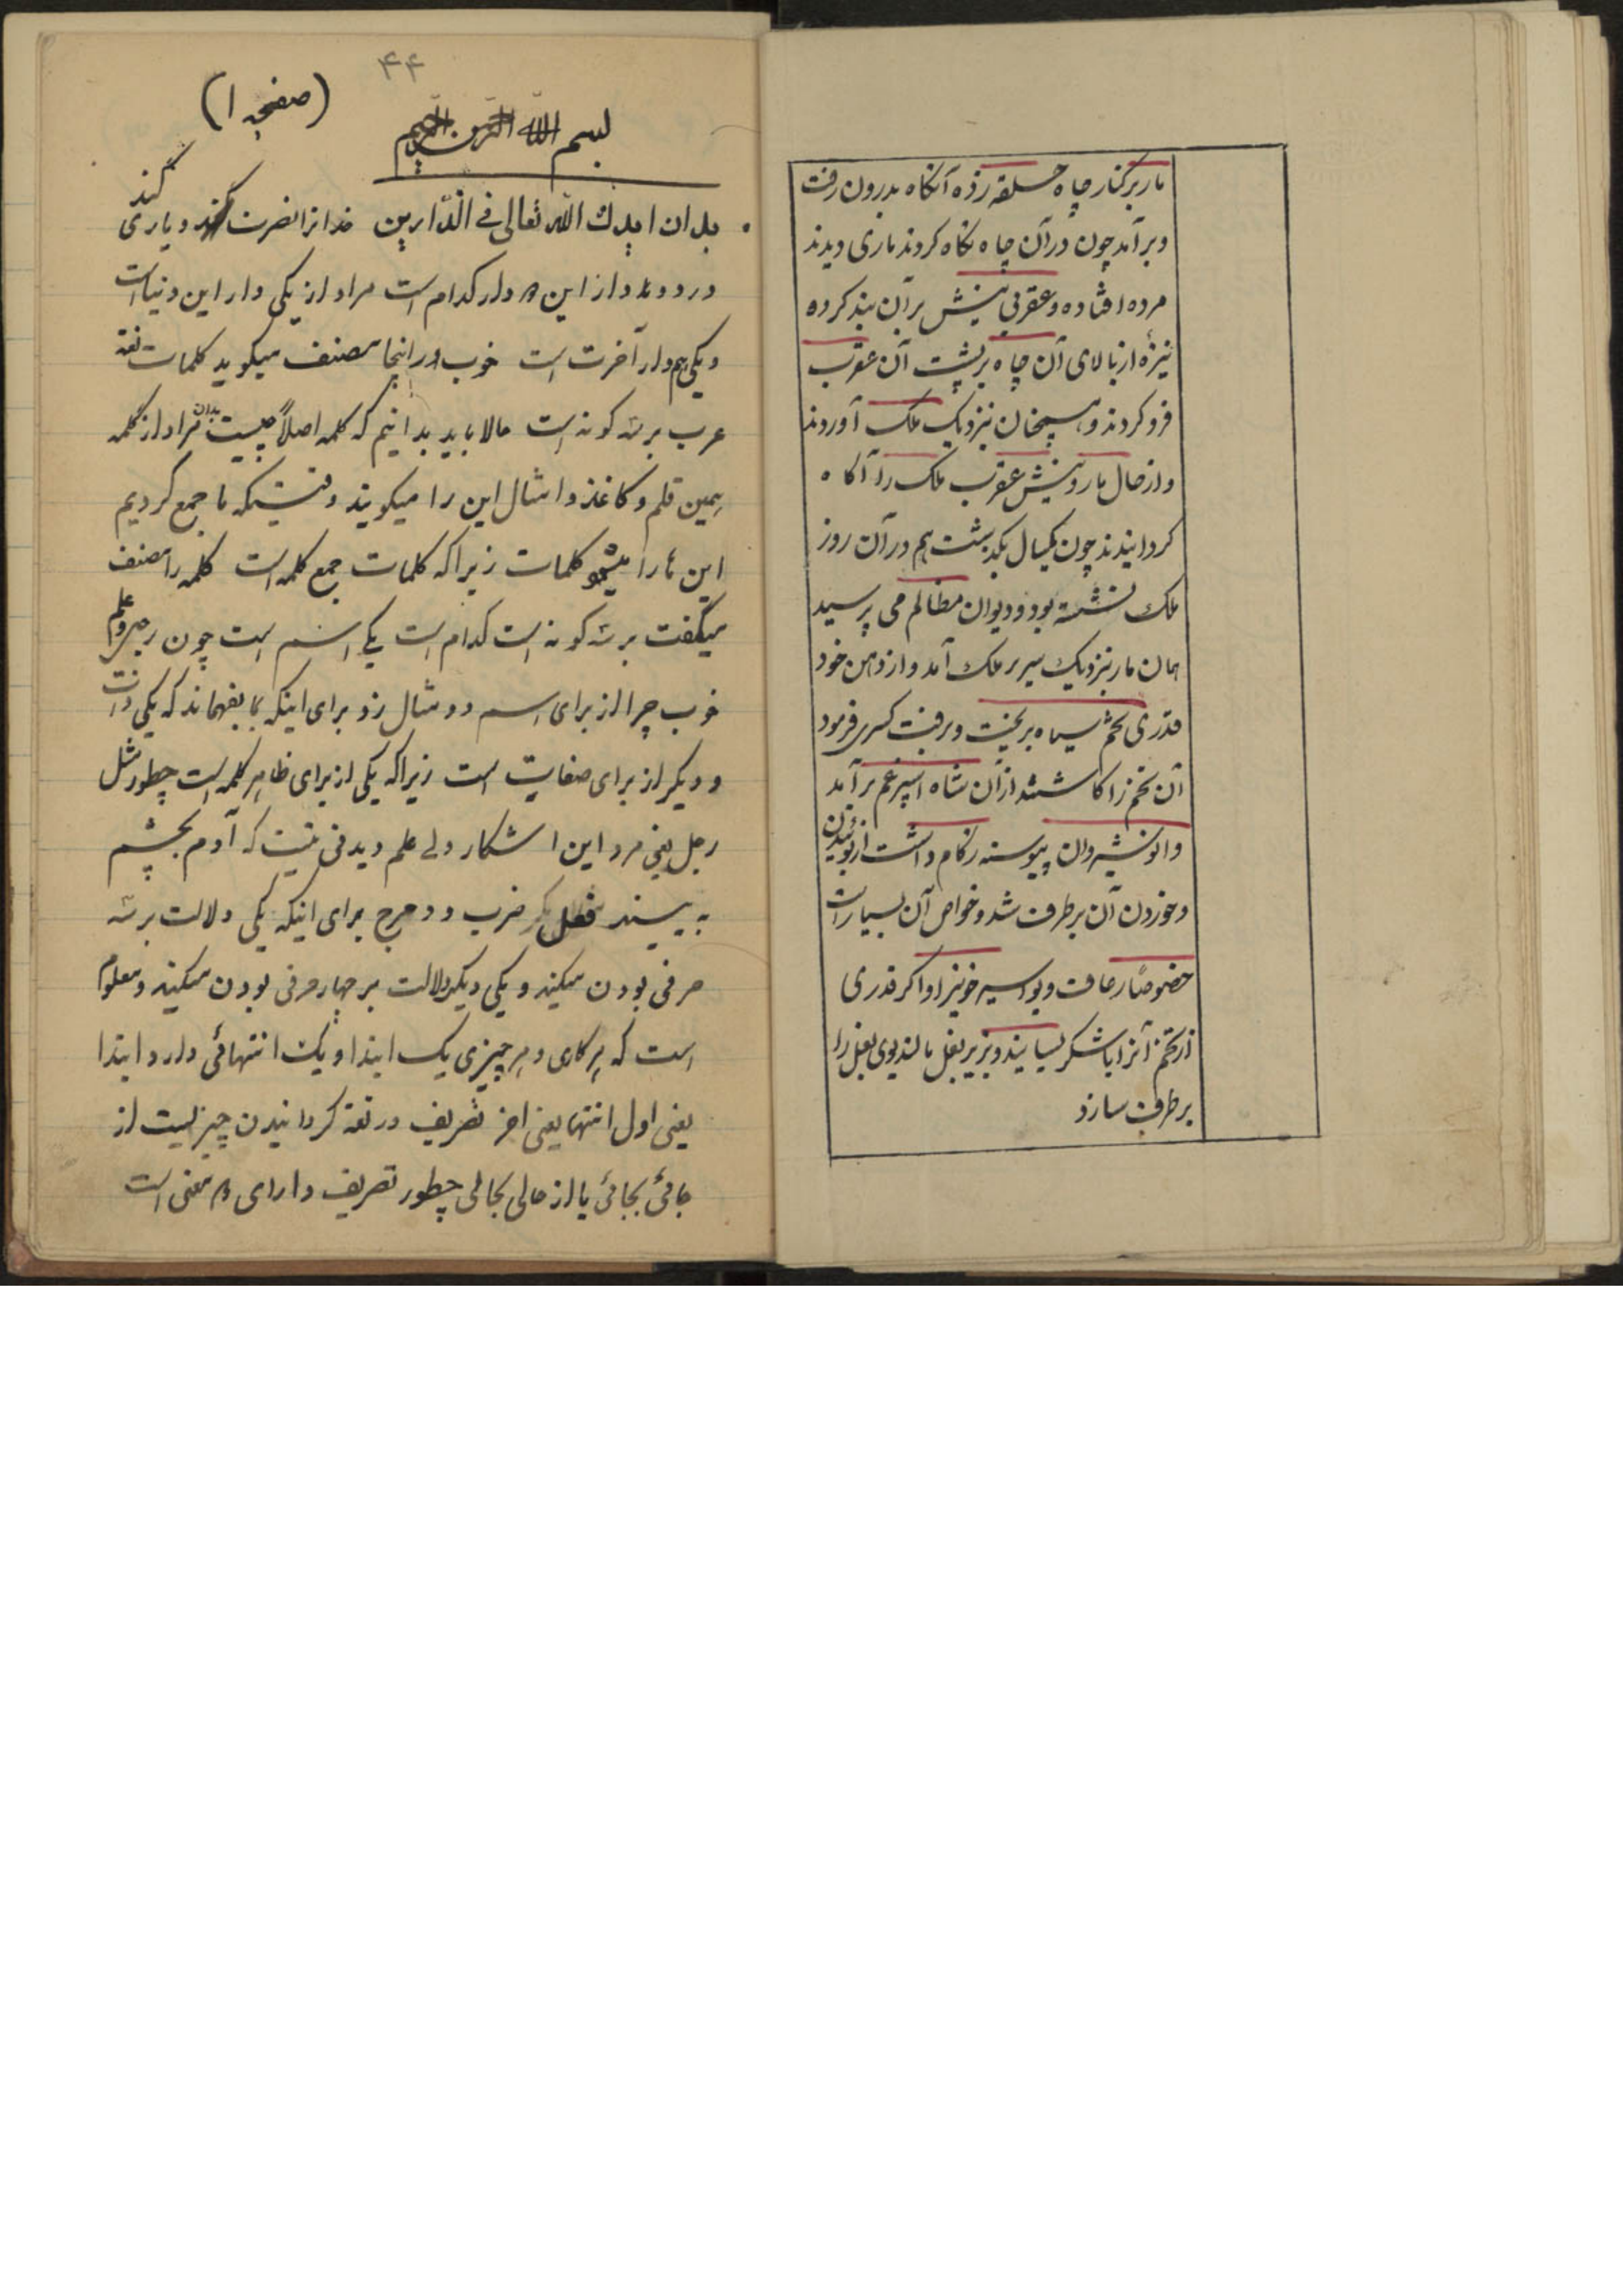 مار بر کنار چاه حلقه زده آنکاه بدرون رفت
و برآمد چون در آن چاه نکاه کردند ماری دیدند
مرده افتاده و عقربی نیش بر آن بند کرده
نیزهٔ از بالای آن چاه بر پشت آن عقرب
فرو کردند و همچنان نزدیک ملک آوردند
و از حال مار و نیش عقرب ملک را آکاه
کردانیدند چون یکسال بکذشت هم در آن روز
ملک نشسته بود و دیوان مظالم می پرسید
همان مار نزدیک سریر ملک آمد و از دهن خود
قدری تخم سیاه بریخت و برفت کسری فرمود
آن تخم را کاشتند از آن شاه اسپرغم برآمد
و انوشیروان پیوسته زکام داشت از بوئیدن
و خوردن آن برطرف شد و خواص آن بسیار است
خصوصاً رعاف و بواسیر خونیرا و اکر قدری
از تخم آنرا با شکر بسایند و بزیر بغل مالند بوی بغل را
برطرف سازد
۴۴
(صفحه ۱)
بسم الله الرحمن الرحیم
بدان ایدک الله تعالی فی الدّارین خدا ترا نصرت کند و یاری کند
در دو دار از این دار کدام است مراد از یکی دار این دنیا است
و یکی هم دار آخرت است خوب در اینجا مصنف میکوید کلمات لغة
عرب بر سه کونه است حالا باید بدانیم که کلمه اصلاً چیست بدان مراد از کلمه
همین قلم و کاغذ و امثال این را میکویند وقتیکه ما جمع کردیم
این ها را میشو کلمات زیرا که کلمات جمع کلمه است کلمه را مصنف
میکفت بر سه کونه است کدام است یکی اسم است چون رجل و علم
خوب چرا از برای اسم دو مثال زد برای اینکه بما بفهماند که یکی ذات
و دیکر از برای صفات است زیرا که یکی از برای ظاهر کلمه است چطور مثل
رجل یعنی مرد این اشکار ولی علم دیدنی نیست که آدم بچشم
به بیند فعل ضرب و دحرج برای اینکه یکی دلالت بر سه
حرفی بودن میکند و یکی دیکر دلالت بر چهار حرفی بودن میکند و معلوم
است که هر کاری و هر چیزی یک ابتدا و یک انتهائی دارد ابتدا
یعنی اول انتها یعنی اخر تصریف در لغة کردانیدن چیزیست از
جائی بجائی یا از حالی بحالی چطور تصریف دارای معنی است